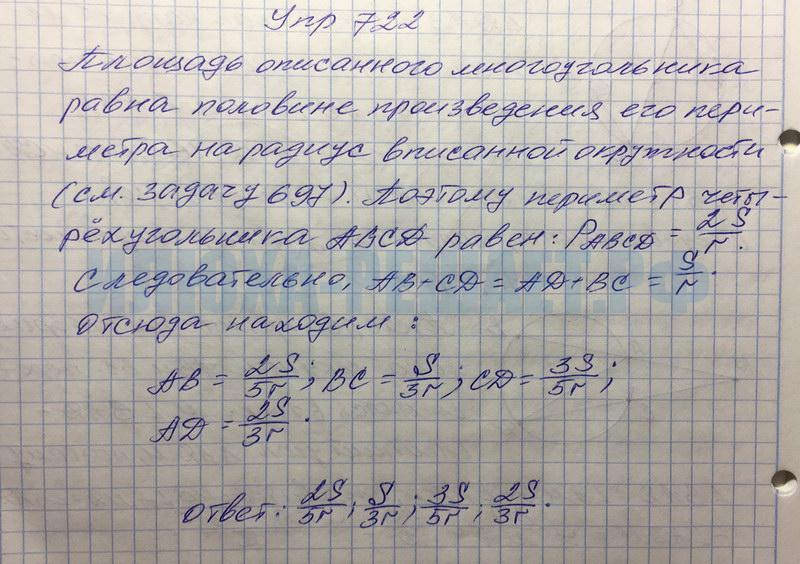 Упр 722
Площадь описанного многоугольника
равна половине произведения его пери-
метра на радиус вписанной окружности
(см. задачу 697). Поэтому периметр четы-
рёхугольника ABCD равен: P_ABCD = 2S/r.
Следовательно, AB+CD = AD+BC = S/r.
Отсюда находим:
AB = 2S/5r; BC = S/3r; CD = 3S/5r;
AD = 2S/3r.
Ответ: 2S/5r; S/3r; 3S/5r; 2S/3r.